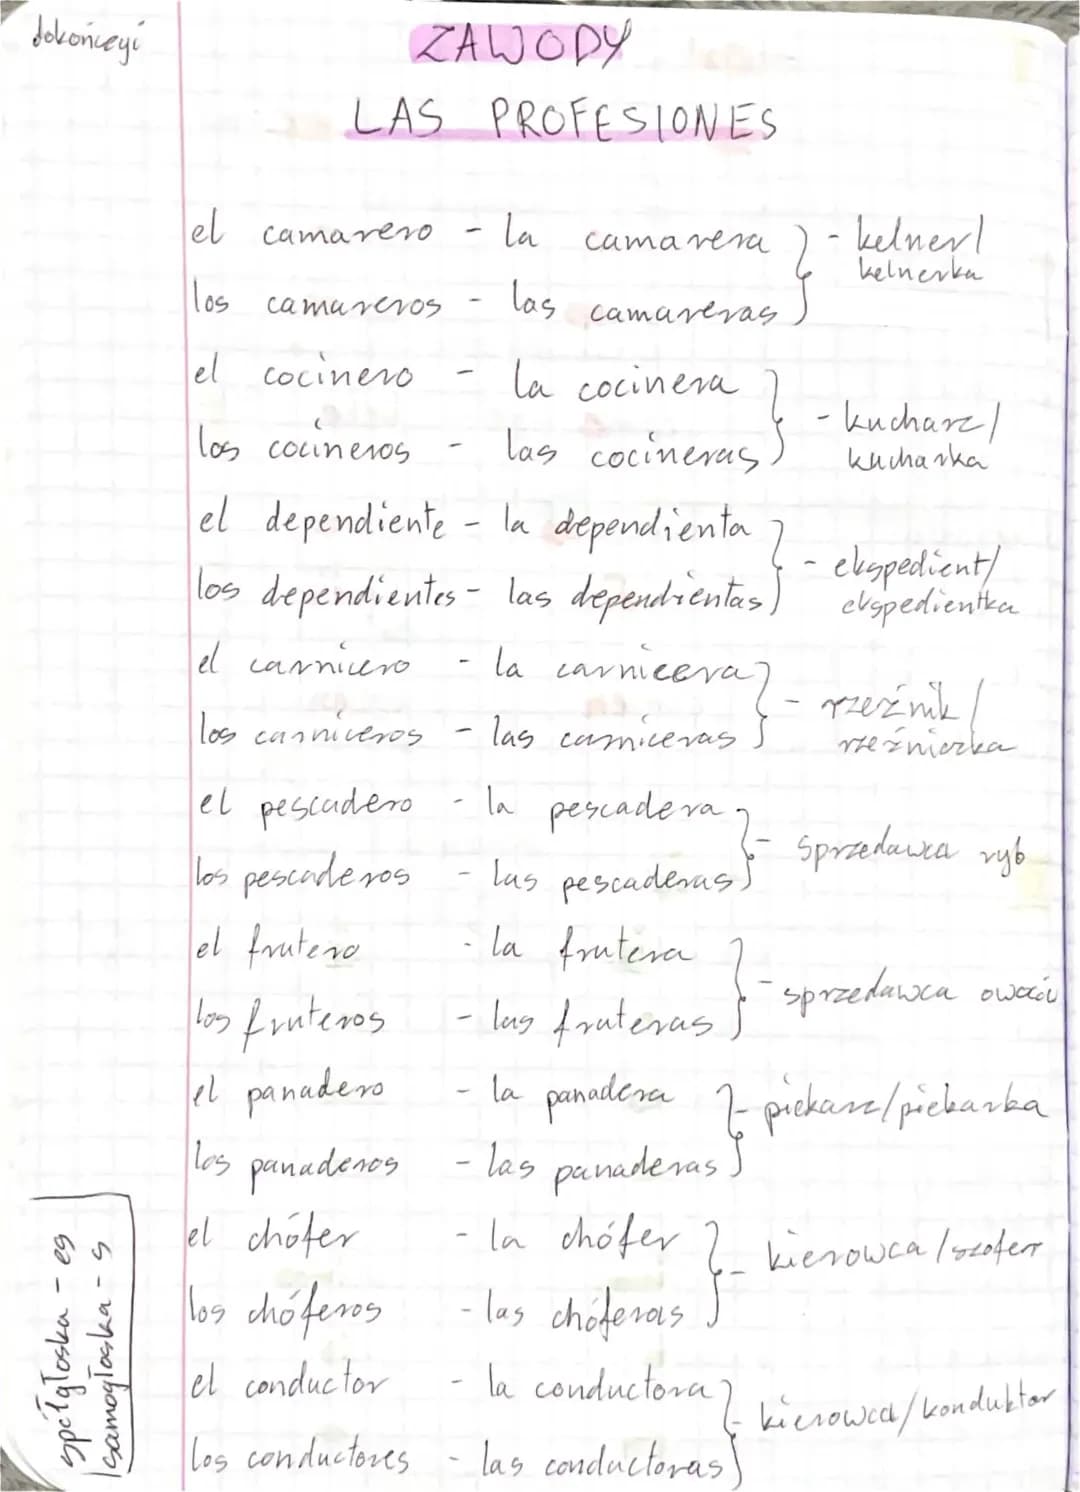 dokończyć
ZAWODY
LAS PROFESIONES
el camarero - la camarera } - kelner/
kelnerka
los camareros - las camareras
el cocinero - la cocinera
- kucharz/
los cocineros - las cocineras
kucharka
el dependiente - la dependienta
- ekspedient/
los dependientes - las dependientas
ekspedientka
el carnicero - la carnicera
- rzeźnik/
los carniceros - las carniceras
rzeźniczka
el pescadero - la pescadera
- sprzedawca ryb
los pescaderos - las pescaderas
el frutero - la frutera
- sprzedawca owoców
los fruteros - las fruteras
el panadero - la panadera } - piekarz/piekarka
los panaderos - las panaderas
el chófer - la chófer
- kierowca/szofer
los chóferos - las chóferas
el conductor - la conductora
- kierowca/konduktor
los conductores - las conductoras
spółgłoska - es
samogłoska - s